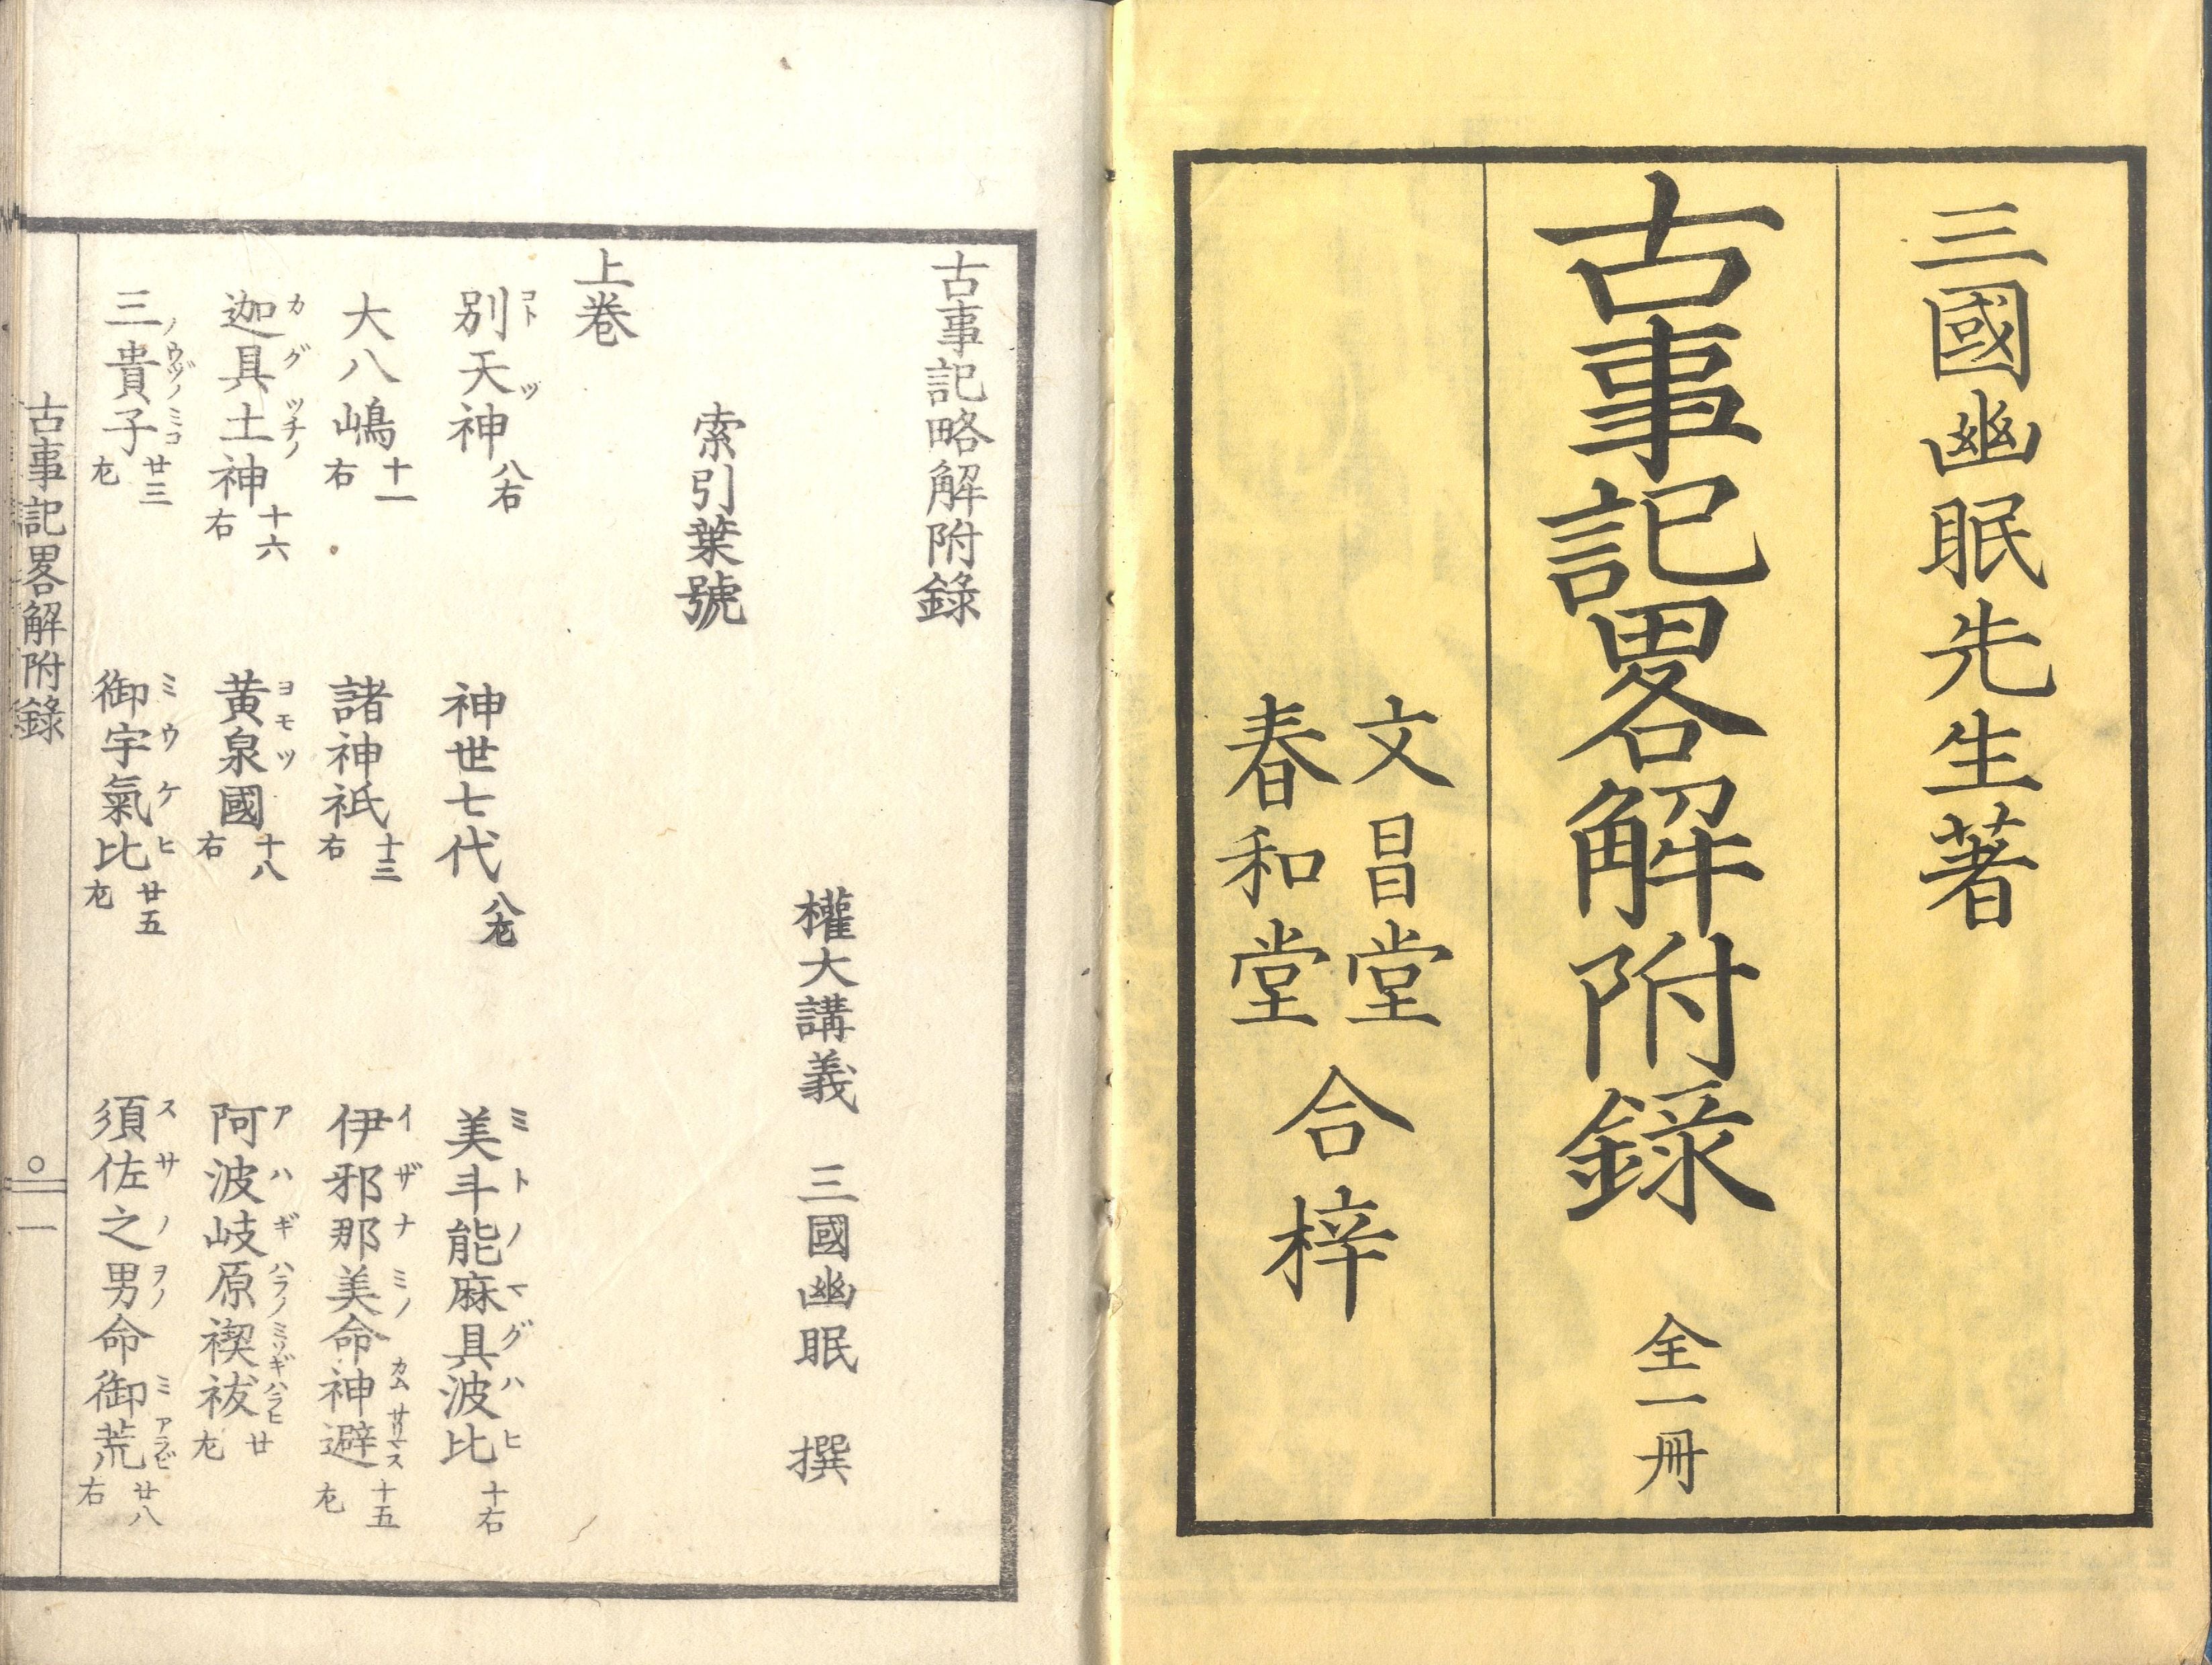 三國幽眠先生著
古事記畧解附錄 全一冊
文昌堂
春和堂
合梓
古事記略解附錄
權大講義 三國幽眠 撰
索引葉號
上卷
別天神 八右 神世七代 八左 美斗能麻具波比 十右
コト ツ ミトノマグハヒ
大八嶋 十一右 諸神祇 十三右 伊邪那美命神避 十五左
イザナミノ カムサリマス
迦具土神 十六右 黄泉國 十八右 阿波岐原禊祓 廿左
カグツチノ ヨモツ アハギハラノミソギハラヒ
三貴子 廿三左 御宇氣比 廿五左 須佐之男命御荒 廿八右
ノウヅノミコ ミウケヒ スサノヲノ ミアラビ
古事記畧解附錄 ○ 一